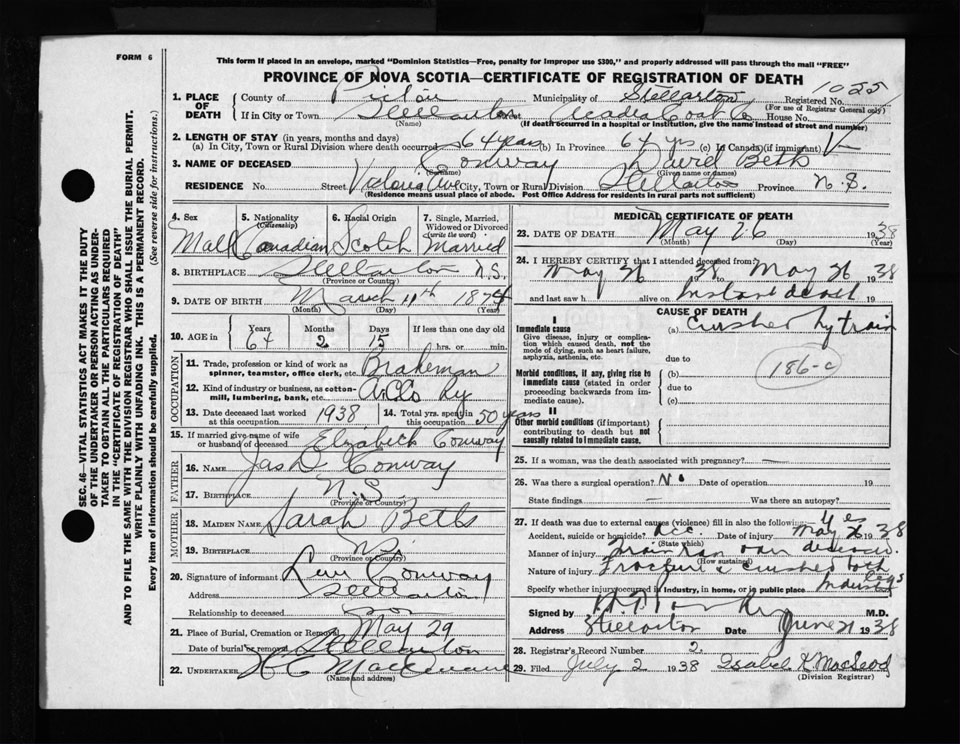 FORM 6
This form if placed in an envelope, marked "Dominion Statistics—Free, penalty for improper use $300," and properly addressed will pass through the mail "FREE"
PROVINCE OF NOVA SCOTIA—CERTIFICATE OF REGISTRATION OF DEATH
1025
1. PLACE OF DEATH County of Pictou Municipality of Stellarton Registered No.
(For use of Registrar General only)
If in City or Town Stellarton Acadia Coal Co House No.
(Name) (If death occurred in a hospital or institution, give the name instead of street and number)
2. LENGTH OF STAY (in years, months and days)
(a) In City, Town or Rural Division where death occurred 64 years (b) In Province 64 yrs (c) In Canada (if immigrant)
3. NAME OF DECEASED Conway David Betts
(Surname) (Given name or names)
RESIDENCE No. Street Victoria Ave City, Town or Rural Division Stellarton Province N.S.
(Residence means usual place of abode. Post Office Address for residents in rural parts not sufficient)
4. Sex 5. Nationality (Citizenship) 6. Racial Origin 7. Single, Married, Widowed or Divorced (write the word)
Male Canadian Scotch Married
8. BIRTHPLACE Stellarton N.S.
(Province or Country)
9. DATE OF BIRTH March 11th 1874
(Month) (Day) (Year)
10. AGE in Years Months Days If less than one day old
64 2 15 hrs. or min.
OCCUPATION
11. Trade, profession or kind of work as spinner, teamster, office clerk, etc. Brakeman
12. Kind of industry or business, as cotton-mill, lumbering, bank, etc. Ry
13. Date deceased last worked at this occupation 1938 14. Total yrs. spent in this occupation 50 years
15. If married give name of wife or husband of deceased Elizabeth Conway
FATHER
16. Name Jas D Conway
17. Birthplace N.S.
(Province or Country)
MOTHER
18. Maiden Name Sarah Betts
19. Birthplace N.S.
(Province or Country)
20. Signature of informant Conway
Address Stellarton
Relationship to deceased son
21. Place of Burial, Cremation or Removal May 29
Date of burial or removal Stellarton
22. UNDERTAKER
(Name and address)
MEDICAL CERTIFICATE OF DEATH
23. DATE OF DEATH May 26 1938
(Month) (Day) (Year)
24. I HEREBY CERTIFY that I attended deceased from:
May 26 1938 to May 26 1938
and last saw h alive on Instant death 19
CAUSE OF DEATH
I
Immediate cause
Give disease, injury or complication which caused death, not the mode of dying, such as heart failure, asphyxia, asthenia, etc.
(a) crushed by train
due to
186-c
Morbid conditions, if any, giving rise to immediate cause (stated in order proceeding backwards from immediate cause).
(b)
due to
(c)
II
Other morbid conditions (if important) contributing to death but not causally related to immediate cause.
25. If a woman, was the death associated with pregnancy? —
26. Was there a surgical operation? No Date of operation 19
State findings — Was there an autopsy?
27. If death was due to external causes (violence) fill in also the following: Yes
Accident, suicide or homicide? Acc. Date of injury May 26 1938
(State which)
Manner of injury Train ran over
(How sustained)
Nature of injury Fracture & crushed both legs
Specify whether injury occurred in industry, in home, or in public place Industry
Signed by M.D.
Address Stellarton Date June 21 1938
28. Registrar's Record Number 2.
29. Filed July 2 1938 Isabel K. MacLeod
(Division Registrar)
SEC. 46—VITAL STATISTICS ACT MAKES IT THE DUTY
OF THE UNDERTAKER OR PERSON ACTING AS UNDERTAKER
TO OBTAIN ALL THE PARTICULARS REQUIRED
IN THE "CERTIFICATE OF REGISTRATION OF DEATH"
AND TO FILE THE SAME WITH THE DIVISION REGISTRAR WHO SHALL ISSUE THE BURIAL PERMIT.
WRITE PLAINLY WITH UNFADING INK. THIS IS A PERMANENT RECORD.
Every item of information should be carefully supplied. (See reverse side for instructions.)